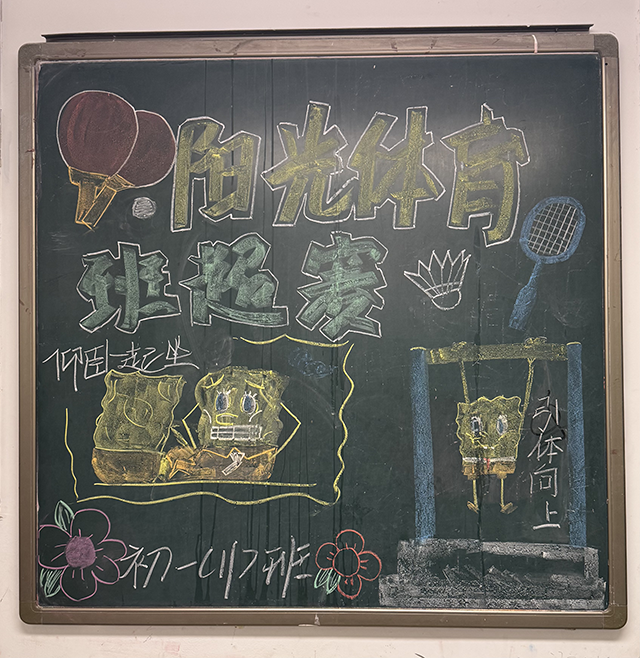 阳光体育
班超赛
仰卧起坐
引体向上
初一(1)班